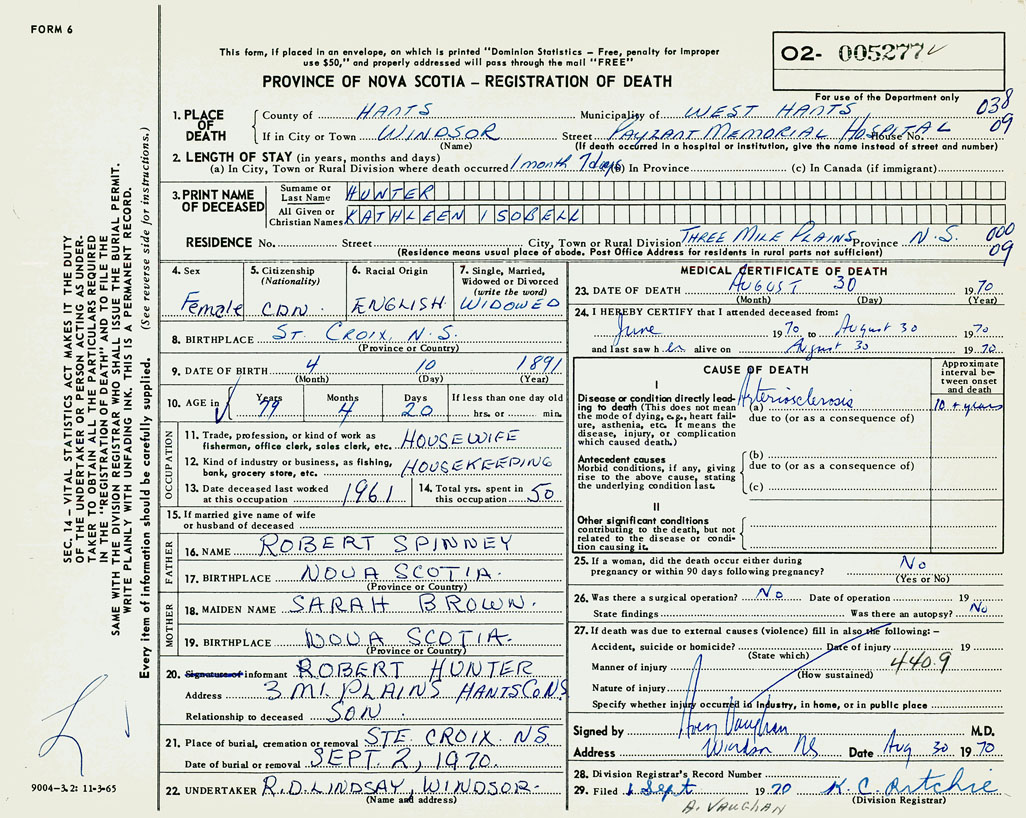 FORM 6
This form, if placed in an envelope, on which is printed "Dominion Statistics – Free, penalty for improper
use $50," and properly addressed will pass through the mail "FREE"
PROVINCE OF NOVA SCOTIA – REGISTRATION OF DEATH
O2- 005277
For use of the Department only
038
09
1. PLACE OF DEATH
County of HANTS Municipality of WEST HANTS
If in City or Town WINDSOR Street PAYZANT MEMORIAL HOSPITAL House No.
(Name) (If death occurred in a hospital or institution, give the name instead of street and number)
2. LENGTH OF STAY (in years, months and days)
(a) In City, Town or Rural Division where death occurred 1 month 7 days (b) In Province (c) In Canada (if immigrant)
3. PRINT NAME OF DECEASED
Surname or Last Name HUNTER
All Given or Christian Names KATHLEEN ISOBELL
RESIDENCE No. Street City, Town or Rural Division THREE MILE PLAINS Province N.S.
(Residence means usual place of abode. Post Office Address for residents in rural parts not sufficient)
000
09
4. Sex Female
5. Citizenship (Nationality) CDN.
6. Racial Origin ENGLISH
7. Single, Married, Widowed or Divorced (write the word) WIDOWED
8. BIRTHPLACE ST. CROIX, N.S.
(Province or Country)
9. DATE OF BIRTH 4 10 1891
(Month) (Day) (Year)
10. AGE in Years 79 Months 4 Days 20 If less than one day old hrs. or min.
OCCUPATION
11. Trade, profession, or kind of work as fisherman, office clerk, sales clerk, etc. HOUSEWIFE
12. Kind of industry or business, as fishing, bank, grocery store, etc. HOUSEKEEPING
13. Date deceased last worked at this occupation 1961
14. Total yrs. spent in this occupation 50
15. If married give name of wife or husband of deceased
FATHER
16. NAME ROBERT SPINNEY
17. BIRTHPLACE NOVA SCOTIA.
(Province or Country)
MOTHER
18. MAIDEN NAME SARAH BROWN.
19. BIRTHPLACE NOVA SCOTIA.
(Province or Country)
20. Signature of informant ROBERT HUNTER
Address 3 MI. PLAINS HANTS CO NS
Relationship to deceased SON.
21. Place of burial, cremation or removal STE. CROIX NS
Date of burial or removal SEPT 2, 1970.
22. UNDERTAKER R.D. LINDSAY, WINDSOR.
(Name and address)
MEDICAL CERTIFICATE OF DEATH
23. DATE OF DEATH AUGUST 30 1970
(Month) (Day) (Year)
24. I HEREBY CERTIFY that I attended deceased from:
June 1970 to August 30 1970
and last saw her alive on August 30 1970
CAUSE OF DEATH
Approximate interval between onset and death
I
Disease or condition directly leading to death (This does not mean the mode of dying, e.g., heart failure, asthenia, etc. It means the disease, injury, or complication which caused death.)
(a) Arteriosclerosis 10 + years
due to (or as a consequence of)
Antecedent causes
Morbid conditions, if any, giving rise to the above cause, stating the underlying condition last.
(b)
due to (or as a consequence of)
(c)
II
Other significant conditions
contributing to the death, but not related to the disease or condition causing it.
25. If a woman, did the death occur either during pregnancy or within 90 days following pregnancy? No
(Yes or No)
26. Was there a surgical operation? No Date of operation 19
State findings Was there an autopsy? No
27. If death was due to external causes (violence) fill in also the following: –
Accident, suicide or homicide? Date of injury 19
(State which)
Manner of injury 440.9
(How sustained)
Nature of injury
Specify whether injury occurred in industry, in home, or in public place
Signed by Vaughan M.D.
Address Windsor NS Date Aug 30 1970
28. Division Registrar's Record Number
29. Filed 1 Sept 1970 K.C. Ritchie
(Division Registrar)
A. VAUGHAN
SEC. 14 – VITAL STATISTICS ACT MAKES IT THE DUTY
OF THE UNDERTAKER OR PERSON ACTING AS UNDER-
TAKER TO OBTAIN ALL THE PARTICULARS REQUIRED
IN THE "REGISTRATION OF DEATH" AND TO FILE THE
SAME WITH THE DIVISION REGISTRAR WHO SHALL ISSUE THE BURIAL PERMIT.
WRITE PLAINLY WITH UNFADING INK. THIS IS A PERMANENT RECORD.
Every item of information should be carefully supplied. (See reverse side for instructions.)
9004-3.2: 11-3-65